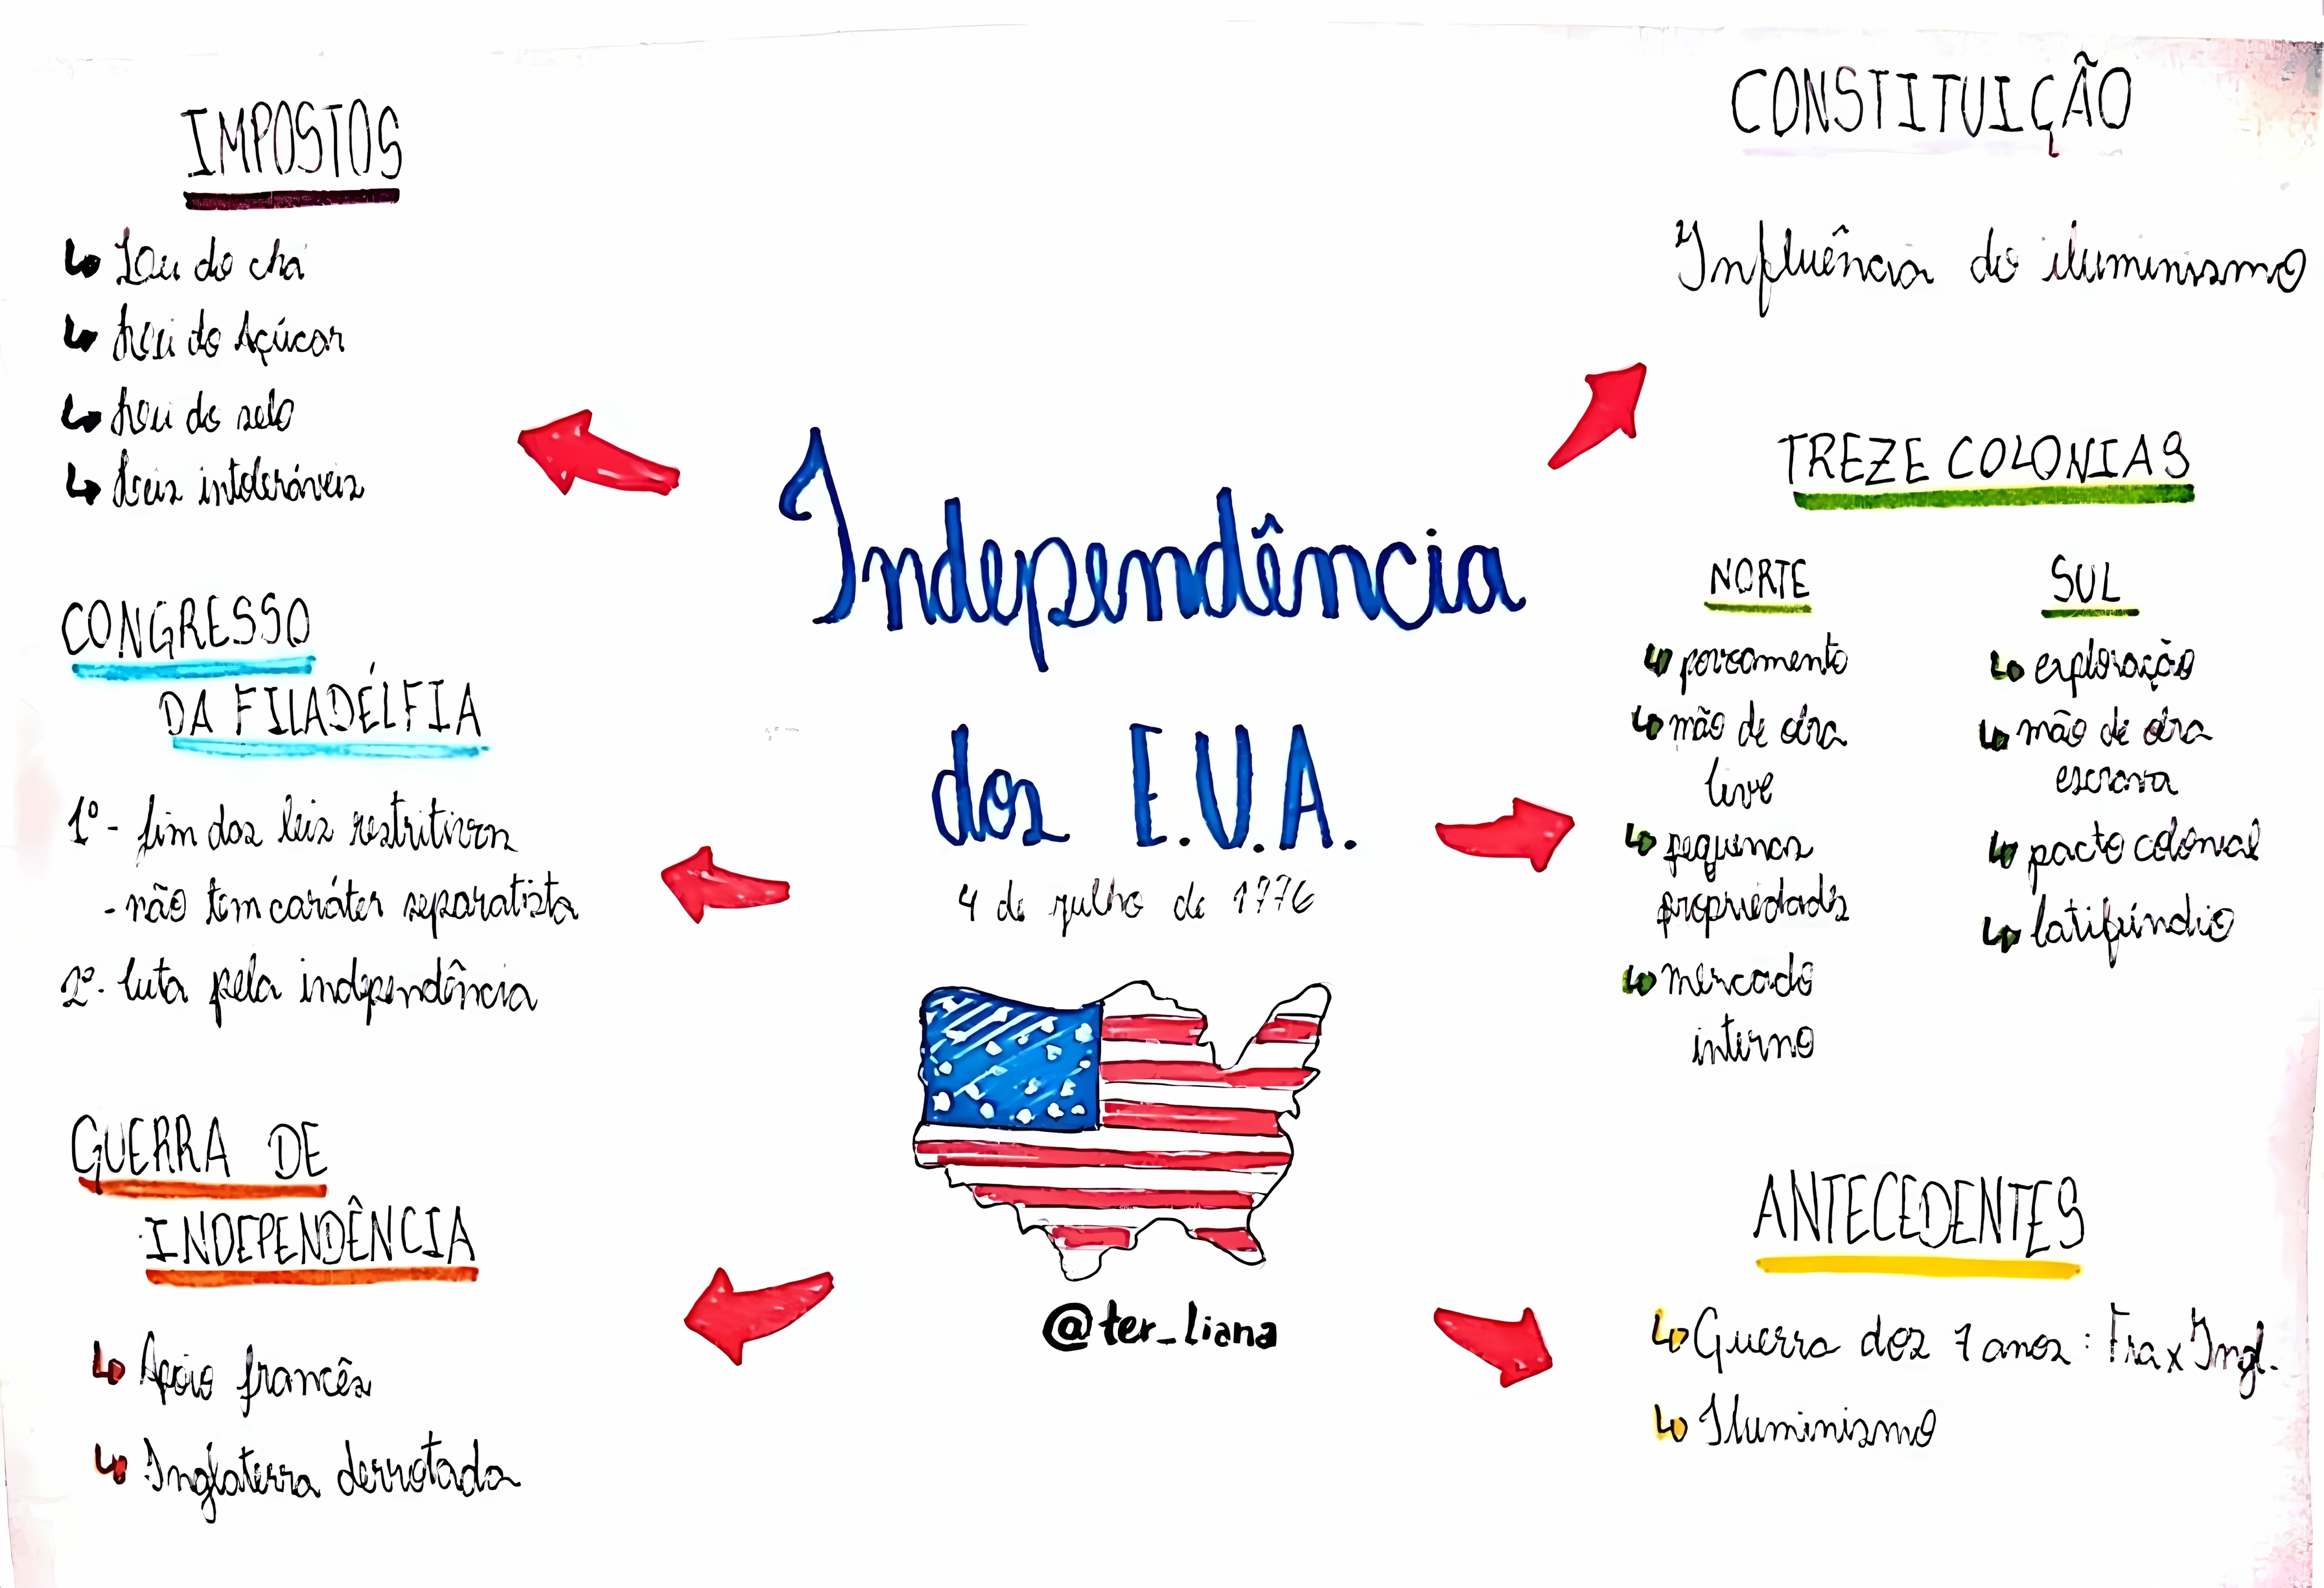 IMPOSTOS
Lei do chá
Lei do Açúcar
Lei do selo
Leis intoleráveis
CONGRESSO
DA FILADÉLFIA
1º - fim das leis restritivas
- não tem caráter separatista
2º - luta pela independência
GUERRA DE
INDEPENDÊNCIA
Apoio francês
Inglaterra derrotada
Independência
dos E.U.A.
4 de julho de 1776
@ter_liana
CONSTITUIÇÃO
Influência do iluminismo
TREZE COLONIAS
NORTE
povoamento
mão de obra
livre
pequenas
propriedades
mercado
interno
SUL
exploração
mão de obra
escrava
pacto colonial
latifúndio
ANTECEDENTES
Guerra dos 7 anos: Fra x Ingl.
Iluminismo